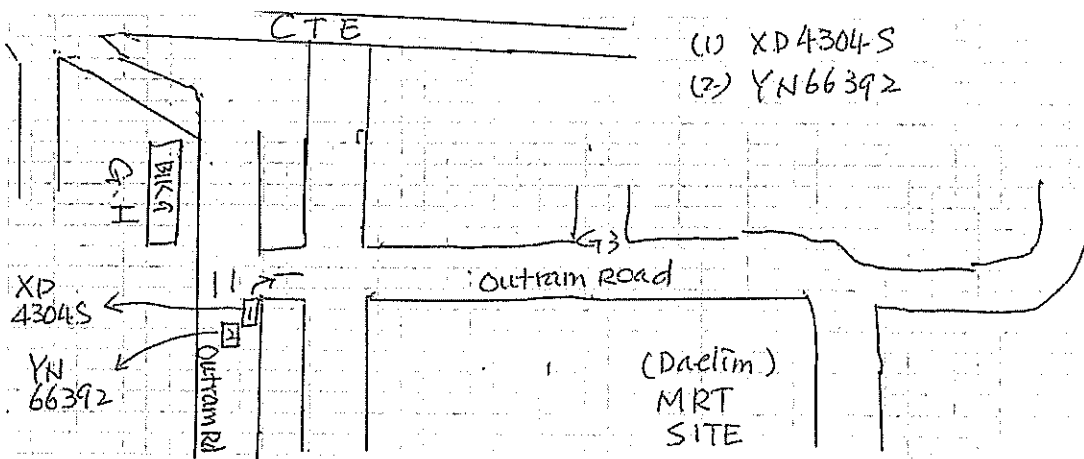 CTE
(1) XD4304-S
(2) YN66392
BLK G
G.H
G3
Outram Road
11
XD
4304-S
1
2
YN
66392
Outram Rd
(Daelim)
MRT
SITE